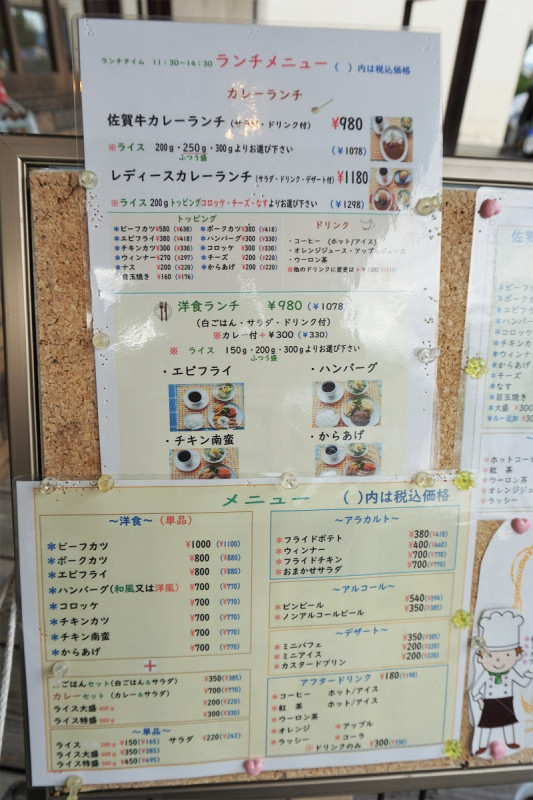 ランチタイム 11:30~14:30 ランチメニュー ( )内は税込価格
カレーランチ
佐賀牛カレーランチ (サラダ・ドリンク付) ¥980
※ライス 200g・250g・300gよりお選び下さい (¥1078)
ふつう盛
レディースカレーランチ (サラダ・ドリンク・デザート付) ¥1180
※ライス200gトッピングコロッケ・チーズ・なすよりお選び下さい (¥1298)
トッピング
*ビーフカツ¥580 (¥638) *ポークカツ¥380 (¥418)
*エビフライ¥380 (¥418) *ハンバーグ¥300 (¥330)
*チキンカツ¥300 (¥330) *コロッケ ¥300 (¥330)
*ウィンナー¥270 (¥297) *チーズ ¥200 (¥220)
*ナス ¥200 (¥220) *からあげ ¥200 (¥220)
目玉焼き ¥160 (¥176)
ドリンク
・コーヒー (ホット/アイス)
・オレンジジュース・アップルジュース
・ウーロン茶
※他のドリンクに変更は+¥100
洋食ランチ ¥980 (¥1078
(白ごはん・サラダ・ドリンク付)
※カレー付+¥300 (¥330)
※ ライス 150g・200g・300gよりお選び下さい
ふつう盛
・エビフライ ・ハンバーグ
・チキン南蛮 ・からあげ
メニュー ( )内は税込価格
~洋食~ (単品)
*ビーフカツ ¥1000 (¥1100)
*ポークカツ ¥800 (¥880)
*エビフライ ¥800 (¥880)
*ハンバーグ(和風又は洋風) ¥700 (¥770)
*コロッケ ¥700 (¥770)
*チキンカツ ¥700 (¥770)
*チキン南蛮 ¥700 (¥770)
*からあげ ¥700 (¥770)
+
ごはんセット (白ごはん&サラダ) ¥350(¥385)
カレーセット (カレー&サラダ) ¥700(¥770)
ライス大盛 400g ¥200(¥220)
ライス特盛 500g ¥300(¥330)
~単品~
ライス 200g ¥150(¥165) サラダ ¥220(¥242)
ライス大盛 400g ¥350(¥385)
ライス特盛 500g ¥450(¥495)
~アラカルト~
*フライドポテト ¥380(¥418)
*ウィンナー ¥400(¥440)
*フライドチキン ¥700(¥770)
*おまかせサラダ ¥700(¥770)
~アルコール~
*ビンビール ¥540(¥594)
*ノンアルコールビール ¥350(¥385)
~デザート~
*ミニパフェ ¥350(¥385)
*ミニアイス ¥200(¥220)
*カスタードプリン ¥200(¥220)
アフタードリンク ¥180(¥198)
*コーヒー ホット/アイス
*紅 茶 ホット/アイス
*ウーロン茶
*オレンジ *アップル
*ラッシー *コーラ
※ドリンクのみ ¥300(¥330)
佐賀
*ビーフカ
*ポークカ
*エビフラ
*ハンバー
*コロッケ
*チキンカ
*ウィンナ
*からあげ
*チーズ
*なす
*目玉焼き
*大盛 ¥30
*ルー追加 ¥30
*ホットコーヒ
*紅 茶
*ウーロン茶
*オレンジジュ
*ラッシー